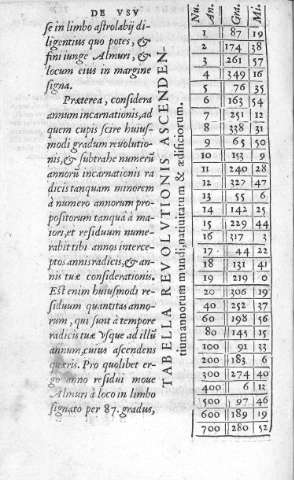 DE VSV
se in limbo astrolabij di-
ligentius quo potes, &
fini iunge Almuri, &
locum eius in margine
signa.
Præterea, considera
annum incarnationis, ad
quem cupis scire huius-
modi gradum reuolutio-
nis, & subtrahe numerū
annorū incarnationis ra
dicis tanquam minorem
à numero annorum pro-
positorum tanquā à ma-
iori, et residuum nume-
rabit tibi annos interce-
ptos annis radicis, & an-
nis tuæ considerationis.
Est enim huiusmodi re-
siduum quantitas anno-
rum, qui sunt à tempore
radicis tuæ vsque ad illū
annum, cuius ascendens
quæris. Pro quolibet er-
go anno residui moue
Almuri à loco in limbo
signato per 87. gradus,
TABELLA REVOLVTIONIS ASCENDEN-
tium annorum mundi, natiuitatum & ædificiorum.
Nu. An. Gra. Mi.
1 87 19
2 174 38
3 261 57
4 349 16
5 76 35
6 163 54
7 251 12
8 338 31
9 65 50
10 153 9
11 240 28
12 327 47
13 55 6
14 142 25
15 229 44
16 317 3
17 44 22
18 131 41
19 219 0
20 306 19
40 252 37
60 198 56
80 145 15
100 91 33
200 183 6
300 274 40
400 6 12
500 97 46
600 189 19
700 280 52